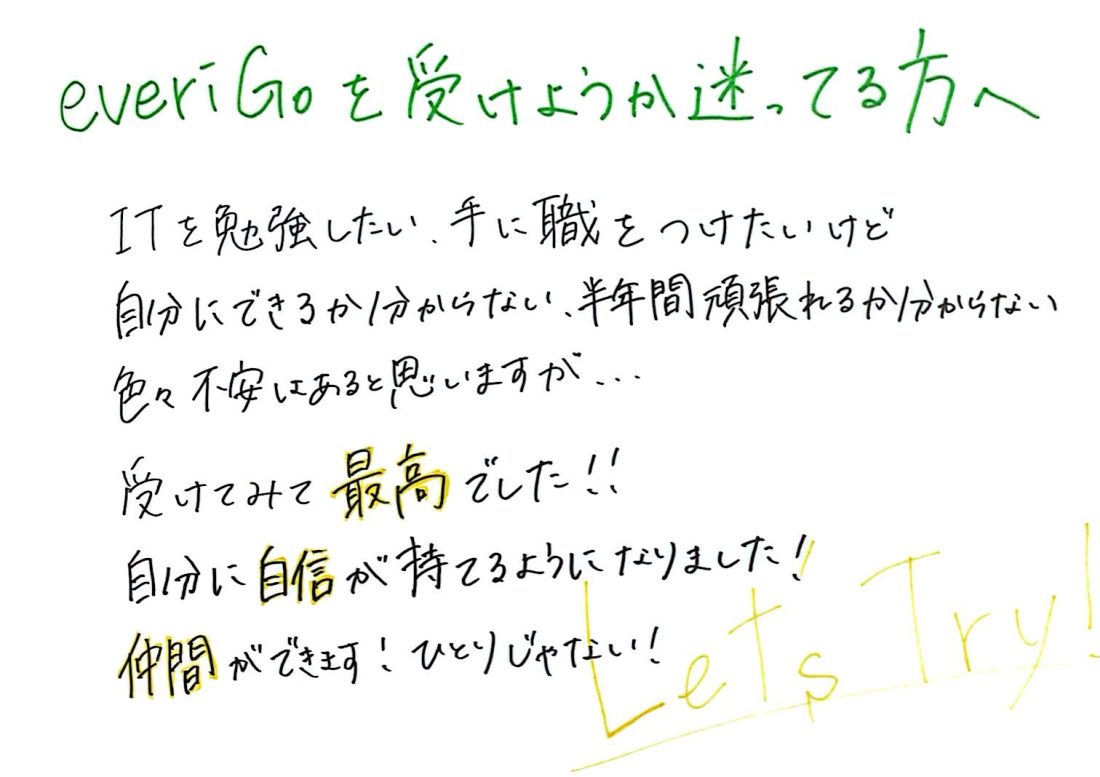 everiGoを受けようか迷ってる方へ
ITを勉強したい、手に職をつけたいけど
自分にできるか分からない、半年間頑張れるか分からない
色々不安はあると思いますが...
受けてみて最高でした!!
自分に自信が持てるようになりました!
仲間ができます!ひとりじゃない!!
Lets Try!